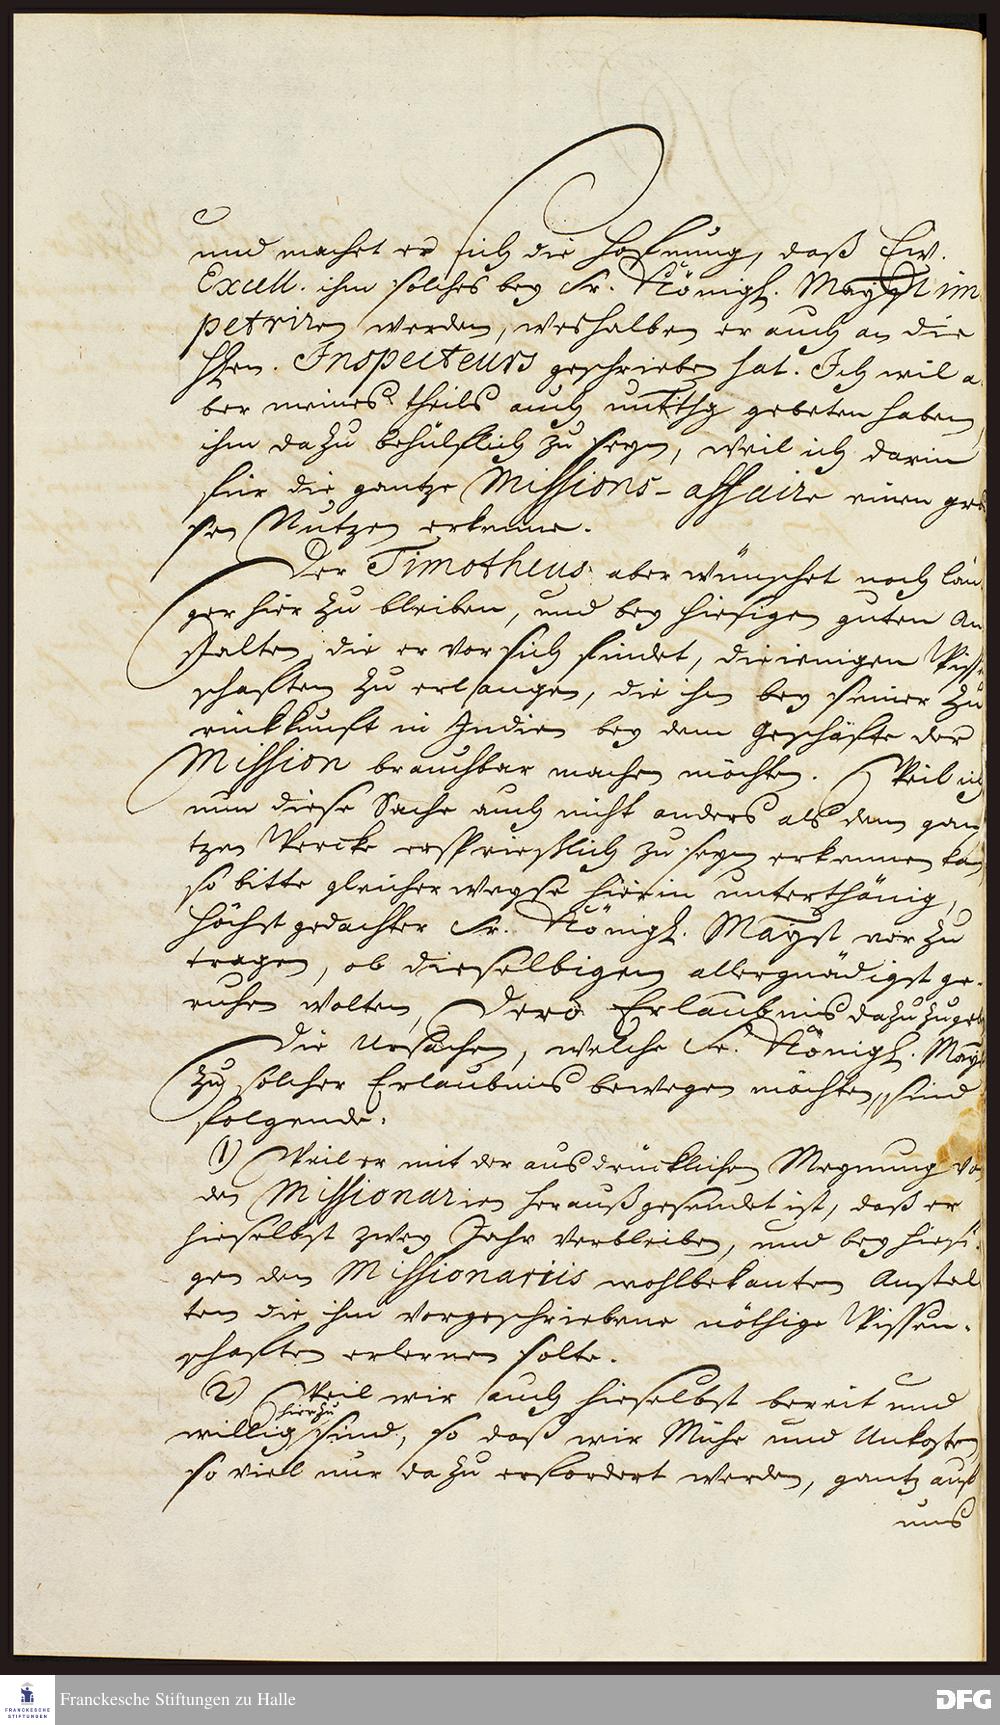 und machet er sich die Hoffnung, daß Ew.
Excell. ihm solches bey Sr. Königl. Mayst im
petriren werden, weshalben er auch an die
HHen. Inspecteurs geschrieben hat. Ich wil a
ber meines theils auch untthg gebeten haben,
ihm dazu behülflich zu seyn, weil ich darin
für die gantze Missions-affaire einen gro
sen Nutzen erkenne.
Der Timotheus aber wünschet noch län
ger hier zu bleiben, und bey hiesigen guten An
stalten, die er vor sich findet, dieienigen Wissen
schaften zu erlangen, die ihn bey seiner Zu
rückkunft in Indien bey dem Geschäfte der
Mission brauchbar machen möchten. Weil ich
nun diese Sache auch nicht anders als dem gan
tzen Wercke ersprießlich zu seyn erkennen kan,
so bitte gleicher weyse hierin unterthänig,
höchst gedachter Sr. Königl. Mayst vor zu
tragen, ob dieselbigen allergnädigst ge-
ruhen wolten, Dero Erlaubnis dazu zu geben
Die Ursachen, welche Sr. Königl. May
zu solcher Erlaubnis bewegen möchten, sind
folgende:
1) Weil er mit der ausdrücklichen Meynung von
den Missionarien herausgesendet ist, daß er
hieselbst zwey Jahr verbleiben, und bey hiesi-
gen den Missionariis wohlbekanten Anstal
ten die ihm vorgeschriebene nöthige Wissen-
schaften erlernen solte.
2) Weil wir auch hieselbst bereit und
willig hierzu sind, so daß wir Mühe und Unkosten
so viel nur dazu erfordert werden, gantz auf
uns
Franckesche Stiftungen zu Halle
FRANCKESCHE
STIFTUNGEN
DFG